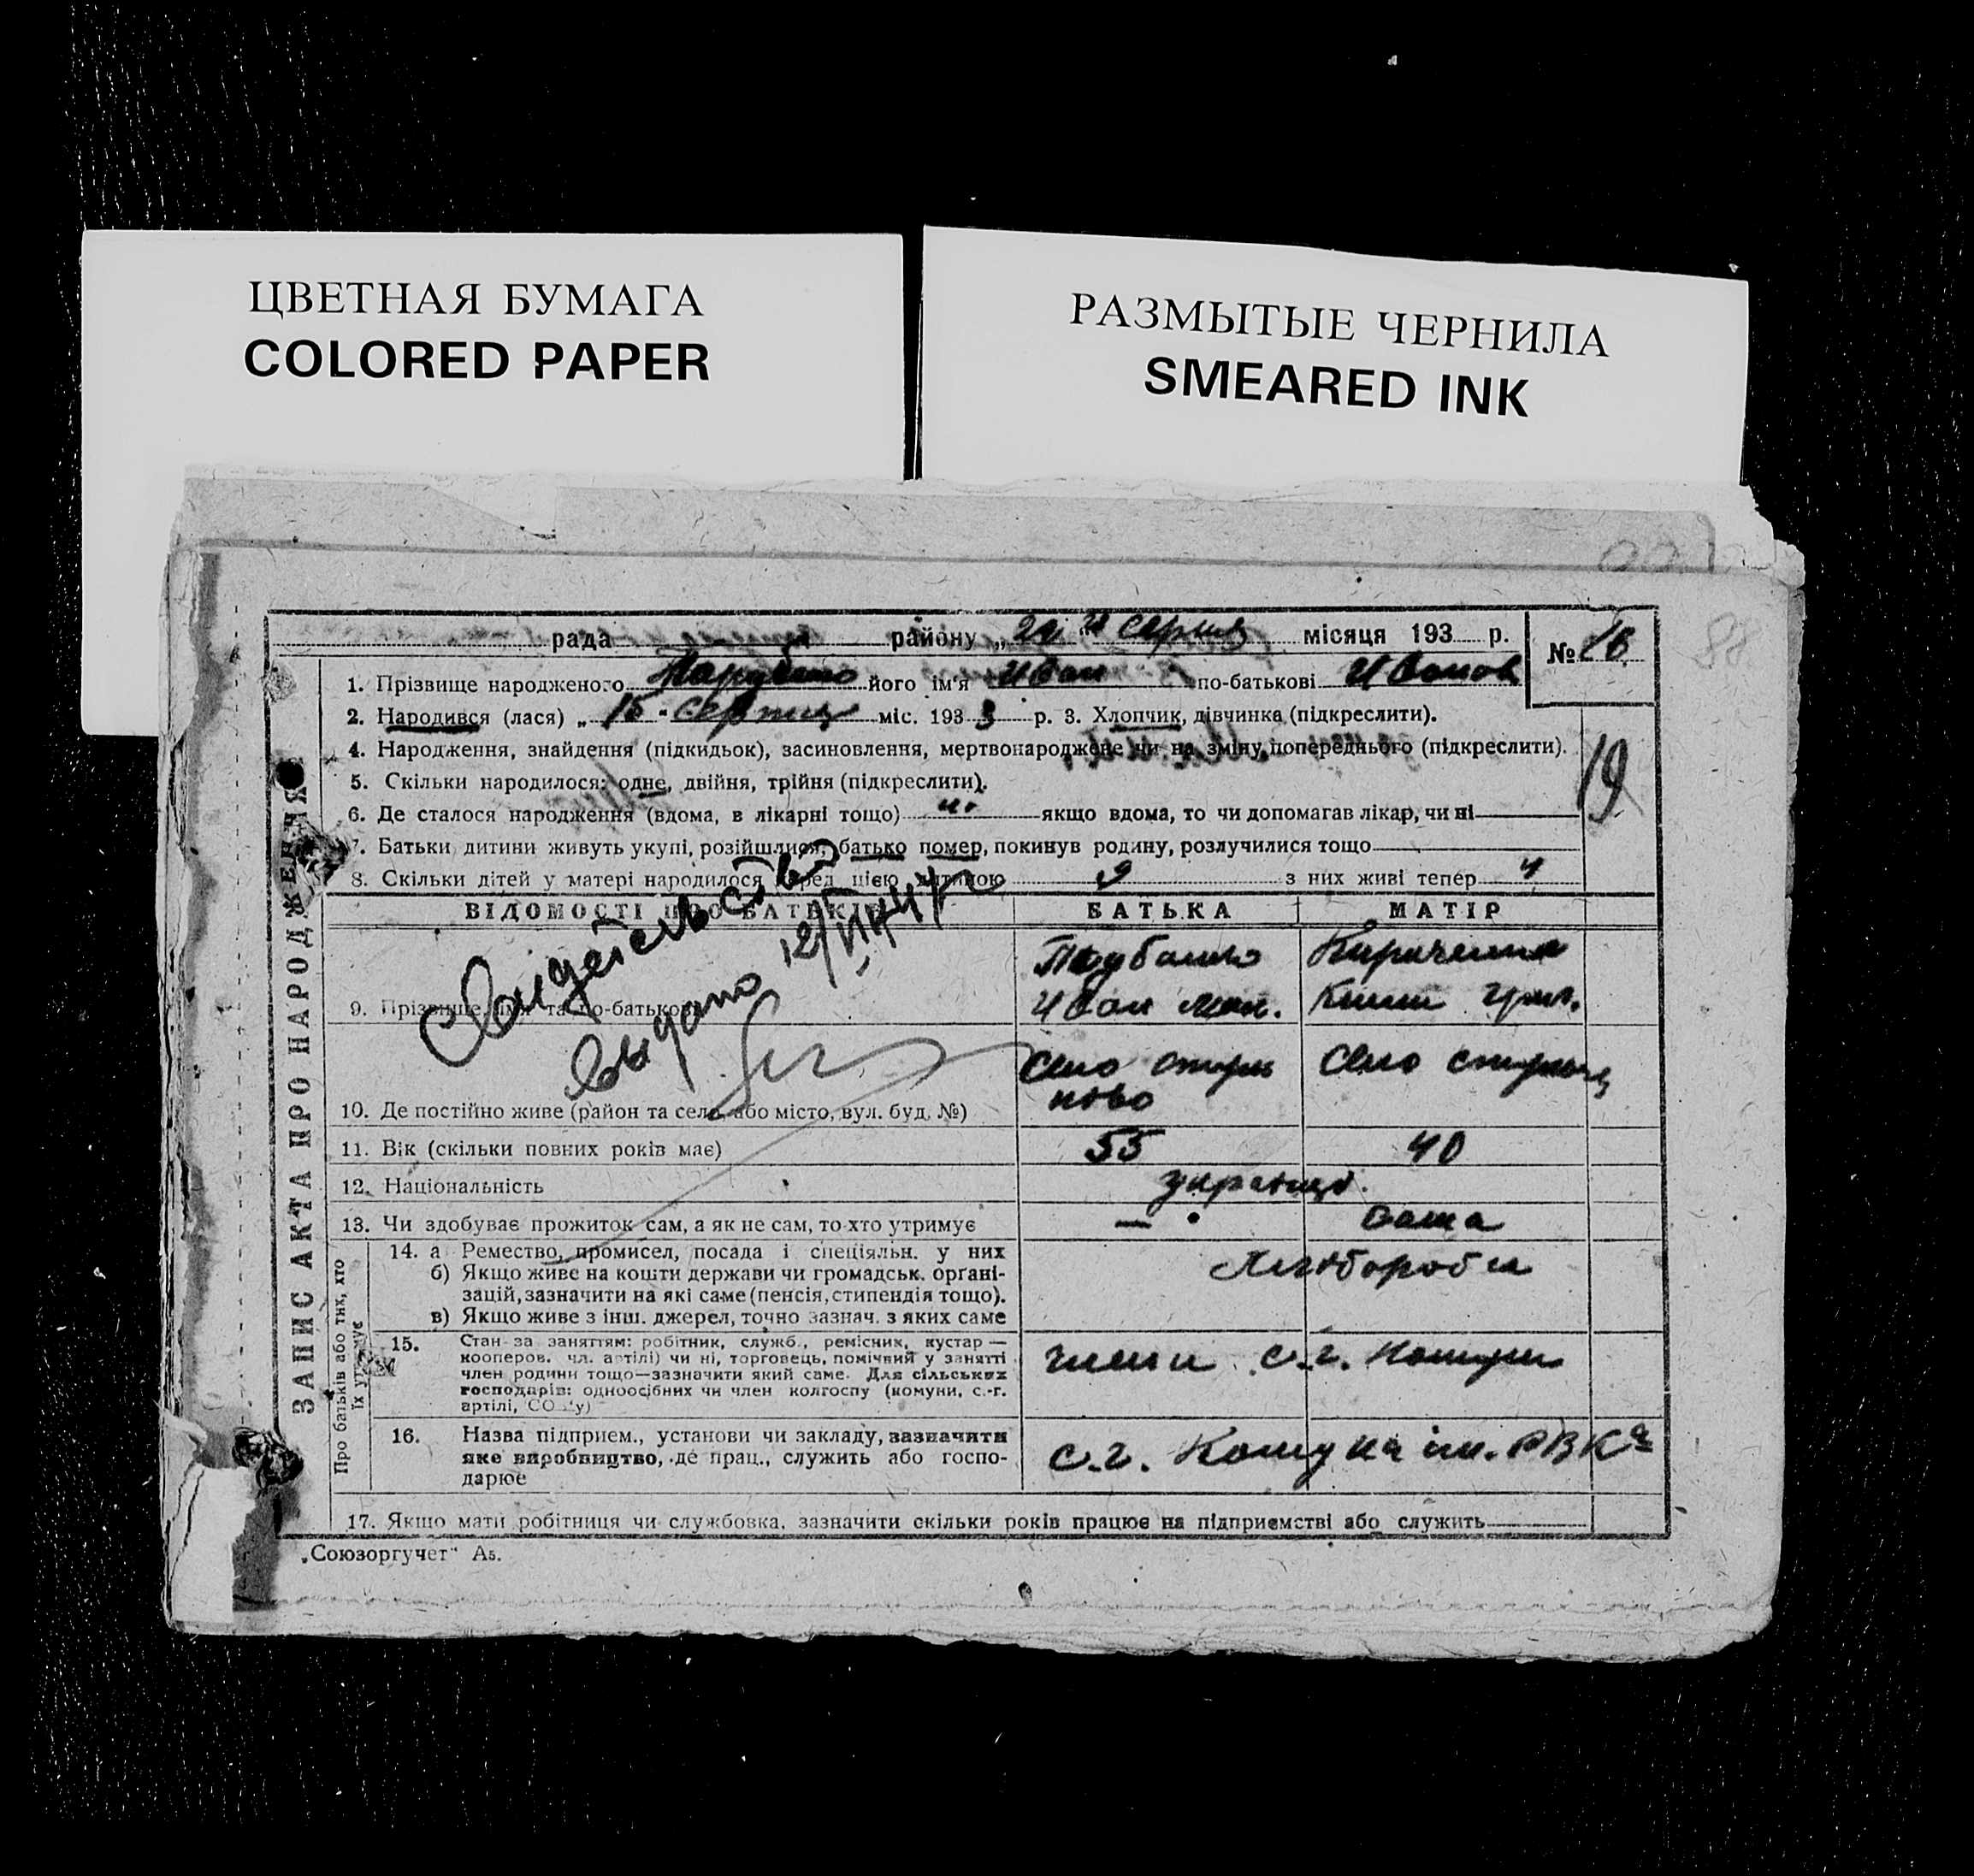 ЦВЕТНАЯ БУМАГА
COLORED PAPER
РАЗМЫТЫЕ ЧЕРНИЛА
SMEARED INK
88
рада району „ " серпня місяця 193 р. № 16
1. Прізвище народженого його ім'я Иван по-батькові Иванов
2. Народився (лася) „ 15 - серпня міс. 193 3 р. 3. Хлопчик, дівчинка (підкреслити).
4. Народження, знайдення (підкидьок), засиновлення, мертвонароджене чи на зміну попереднього (підкреслити).
5. Скільки народилося: одне, двійня, трійня (підкреслити).
19
6. Де сталося народження (вдома, в лікарні тощо) якщо вдома, то чи допомагав лікар, чи ні
7. Батьки дитини живуть укупі, розійшлися, батько помер, покинув родину, розлучилися тощо
8. Скільки дітей у матері народилося перед цією дитиною 9 з них живі тепер 4
ЗАПИС АКТА ПРО НАРОДЖЕННЯ
ВІДОМОСТІ ПРО БАТЬКІВ БАТЬКА МАТІР
Свидетельство
выдано 12/
9. Прізвище, ім'я та по-батькові
Иван
10. Де постійно живе (район та село, або місто, вул. буд. №) Село Село
11. Вік (скільки повних років має) 55 40
12. Національність українці
13. Чи здобуває прожиток сам, а як не сам, то хто утримує — сама
Про батьків або тих, хто їх утримує
14. а Ремество, промисел, посада і спеціяльн. у них
б) Якщо живе на кошти держави чи громадськ. органі-
зацій, зазначити на які саме (пенсія, стипендія тощо).
в) Якщо живе з інш. джерел, точно зазнач. з яких саме
Хлібороби
15. Стан за заняттям: робітник, служб., ремісник, кустар —
кооперов. чл. артілі) чи ні, торговець, помічний у занятті
член родини тощо—зазначити який саме. Для сільських
господарів: одноосібних чи член колгоспу (комуни, с.-г.
артілі, СОЗу)
члени с.г. комуни
16. Назва підприєм., установи чи закладу, зазначити
яке виробництво, де прац., служить або госпо-
дарює
с.г. Комуна ім. РВКа
17. Якщо мати робітниця чи службовка, зазначити скільки років працює на підприємстві або служить
„Союзоргучет" А5.